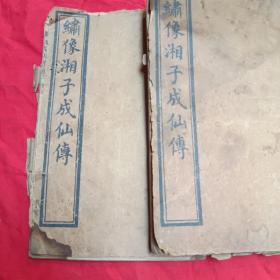 繡像湘子成仙傳
繡像湘子成仙傳